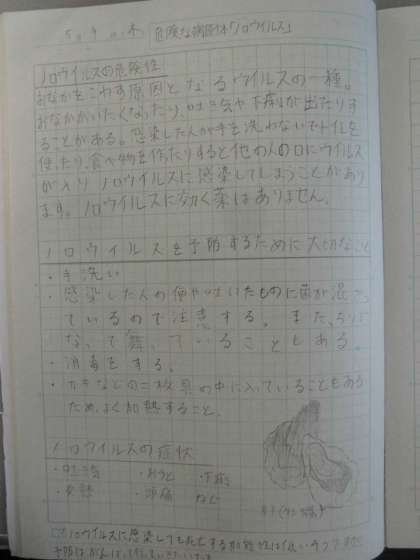 危険な病原体「ノロウイルス」
ノロウイルスの危険性
おなかをこわす原因となるウイルスの一種。
おなかがいたくなったり、吐き気や下痢が出たりす
ることがある。感染した人が手を洗わないでトイレを
使たり、食べ物を作たりすると他の人の口にウイルス
が入り ノロウイルスに感染してしまうことがあり
ます。ノロウイルスに効く薬はありません。
ノロウイルスを予防するために大切なこと
・手洗い
・感染した人の便や吐いたものに菌が混ざっ
ているので注意する。また、ちりに
なって舞っていることもある
・消毒をする。
・カキなどの二枚貝の中に入っていることもある
ため、よく加熱すること。
ノロウイルスの症状
・吐き気 ・おうと ・下痢
・頭痛 など
ノロウイルスに感染しても死亡する可能性は低い